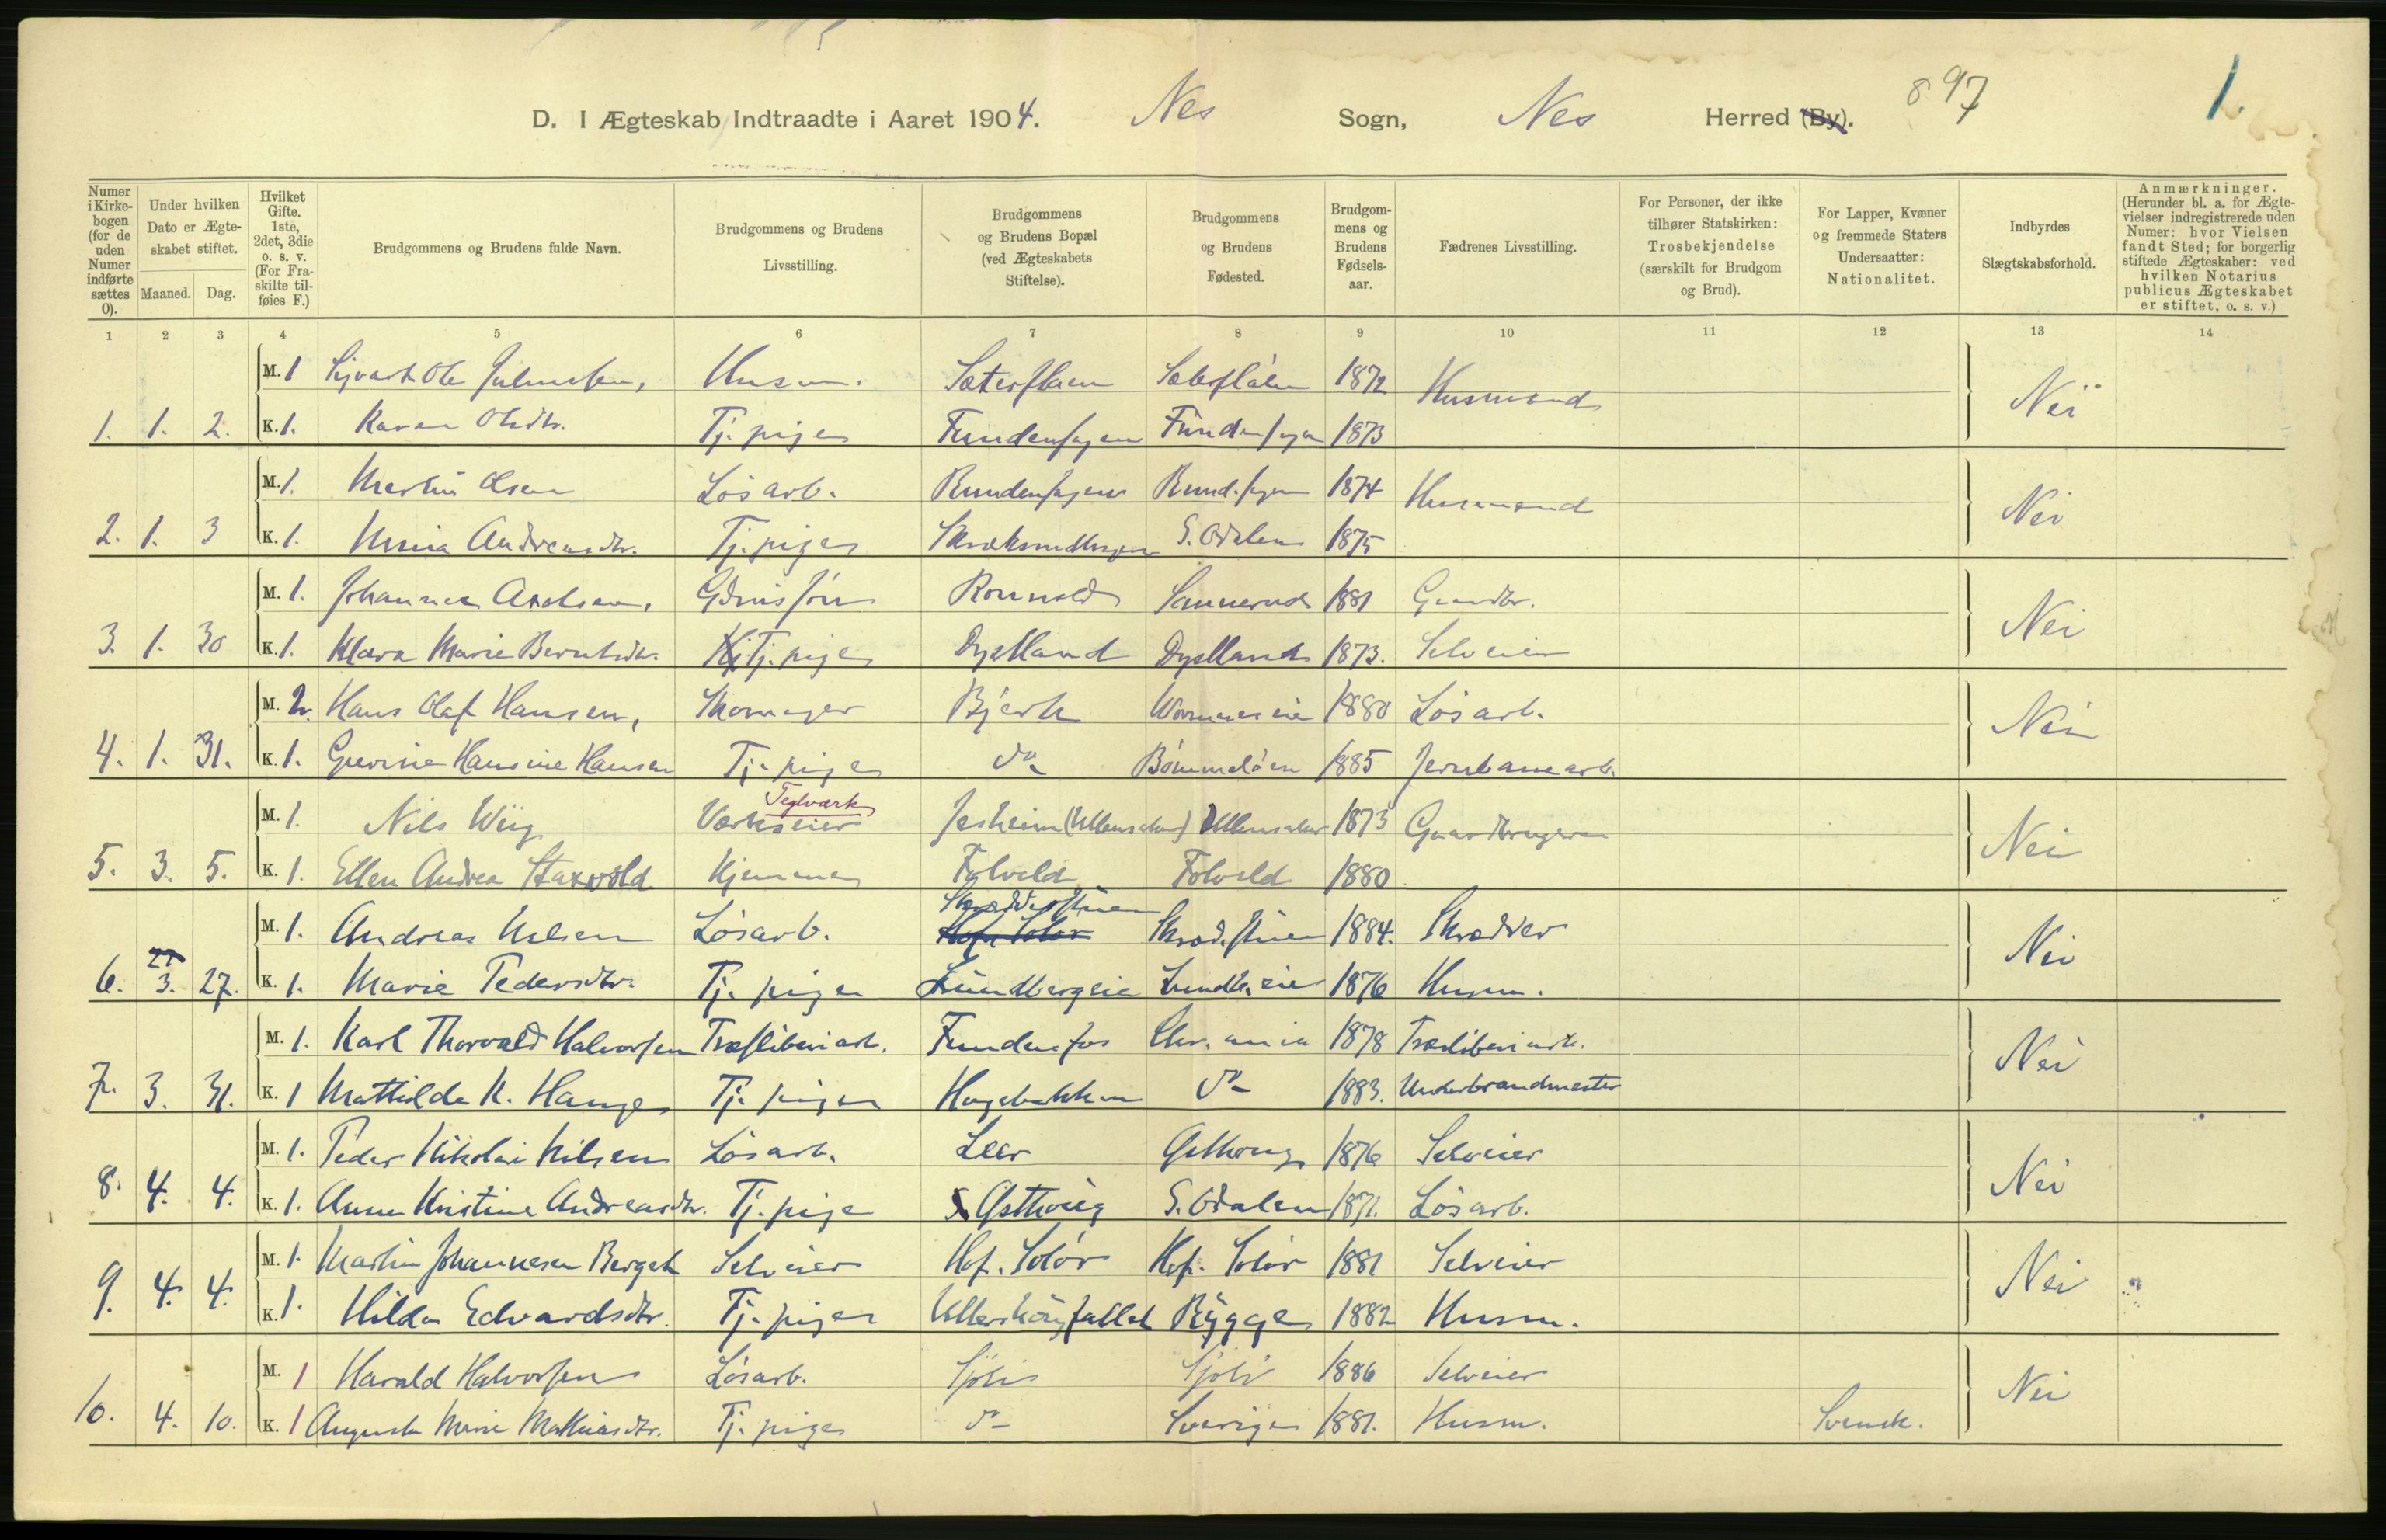 D. I Ægteskab Indtraadte i Aaret 1904. Nes Sogn, Nes Herred (By). 897 1.
Numer i Kirkebogen (for de uden Numer indførte sættes 0).
Under hvilken Dato er Ægteskabet stiftet.
Maaned. Dag.
Hvilket Gifte. 1ste, 2det, 3die o. s. v. (For Fraskilte tilføies F.)
Brudgommens og Brudens fulde Navn.
Brudgommens og Brudens Livsstilling.
Brudgommens og Brudens Bopæl (ved Ægteskabets Stiftelse).
Brudgommens og Brudens Fødested.
Brudgommens og Brudens Fødselsaar.
Fædrenes Livsstilling.
For Personer, der ikke tilhører Statskirken: Trosbekjendelse (særskilt for Brudgom og Brud).
For Lapper, Kvæner og fremmede Staters Undersaatter: Nationalitet.
Indbyrdes Slægtskabsforhold.
Anmærkninger. (Herunder bl. a. for Ægtevielser indregistrerede uden Numer: hvor Vielsen fandt Sted; for borgerlig stiftede Ægteskaber: ved hvilken Notarius publicus Ægteskabet er stiftet, o. s. v.)
1 2 3 4 5 6 7 8 9 10 11 12 13 14
M. 1 Ole Husm. 1872 Husmand Nei
1. 1. 2. K. 1. Karen Olsdtr. Tj. pige Fundenfossen 1873
M. 1. Martin Olsen Løsarb. 1874 Husmand Nei
2. 1. 3 K. 1. Andreasdtr. Tj. pige S. Odalen 1875
M. 1. Johannes Axelsen, Rommold 1881 Gaardbr. Nei
3. 1. 30 K. 1. Klara Marie Berntsdtr. Tj. pige Dystland Dystland 1873. Selveier
M. 2. Hans Olaf Hansen, Skomager Bjerk 1880 Løsarb. Nei
4. 1. 31. K. 1. Hansine Hansen Tj. pige do 1885 Jernbanearb.
M. 1. Nils Wiig Teglværk Værkseier Jesheim (Ullensaker) Ullensaker 1873 Gaardbruger Nei
5. 3. 5. K. 1. Ellen Andrea Hjemme 1880
M. 1. Andreas Nilsen Løsarb. Hof, Solør 1884. Skrædder Nei
6. 3. 27. K. 1. Marie Pedersdtr. Tj. pige Lundbergeie Lundb. eie 1876 Husm.
M. 1. Karl Thorvald Halvorsen Træsliberiarb. Fundenfos Chr. ania 1878 Træsliberiarb. Nei
7. 3. 31. K. 1 Mathilde K. Hauge Tj. pige Hagebakken do 1883. Underbrandmester
M. 1. Peder Nikolai Nilsen Løsarb. Leer 1876 Selveier Nei
8. 4. 4. K. 1. Anne Kristine Andreasdtr. Tj. pige S. Odalen 1871. Løsarb.
M. 1. Martin Johannesen Berget Selveier Hof. Solør Hof. Solør 1881 Selveier Nei
9. 4. 4. K. 1. Hilda Edvardsdtr. Tj. pige Rygge 1882 Husm.
M. 1 Harald Halvorsen Løsarb. Sjøli Sjøli 1886 Selveier Nei
10. 4. 10. K. 1 Augusta Marie Mathiasdtr. Tj. pige do Sverige 1881. Husm. Svensk.